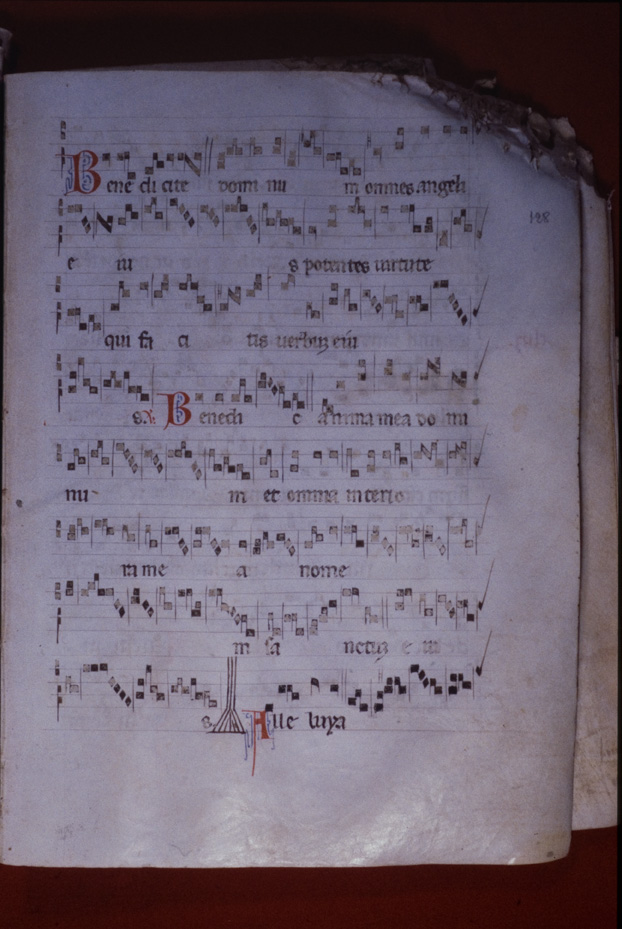 Bene di cite domi nu m omnes angeli
128
e iu s potentes uirtute
qui fa ci tis uerbuʒ eiu
s. ℣. Benedi c anima mea domi
nu m et omnia interio
ra me a nome
m sa nctuʒ e iu
s. Alle luya